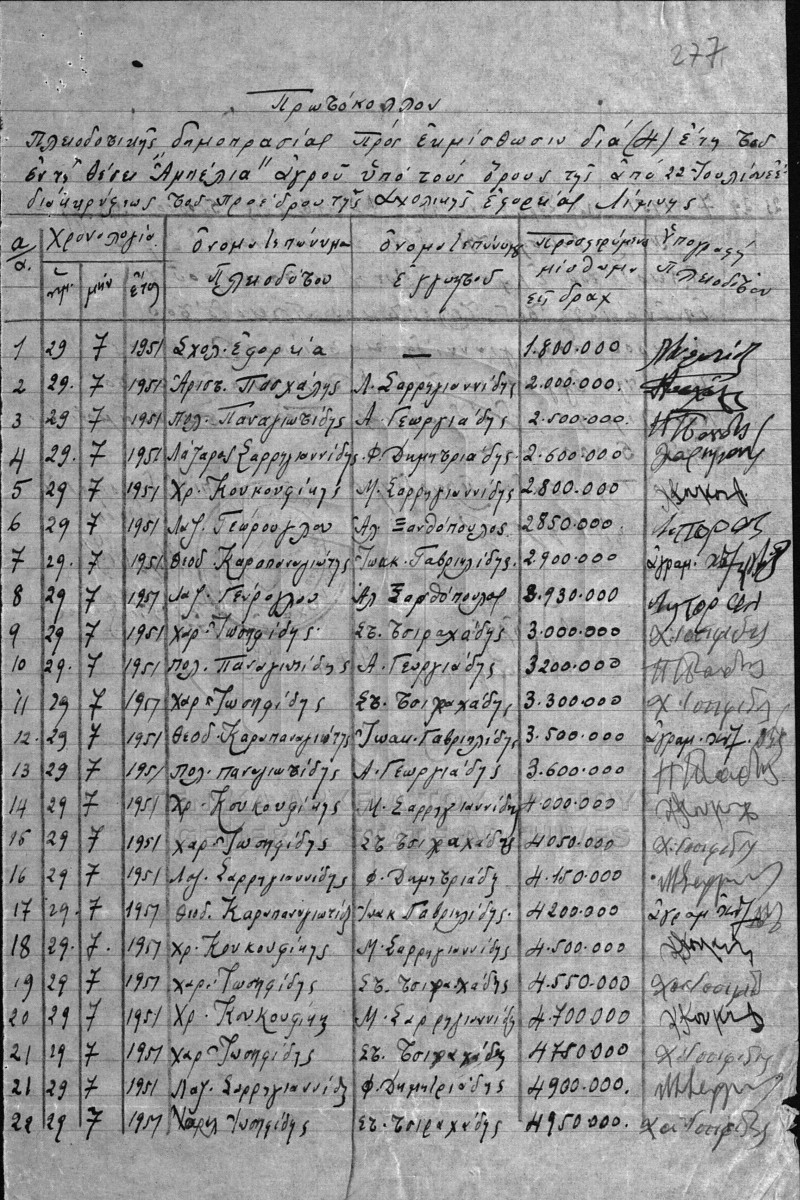 277
Πρωτόκολλον
Πλειοδοτικῆς δημοπρασίας πρὸς ἐκμίσθωσιν διὰ (4) ἔτη τοῦ
ἐν τῇ θέσει "Ἀμπέλια" ἀγροῦ ὑπὸ τοὺς ὅρους τῆς ἀπὸ 22 Ἰουλίου ἐ.ἔ.
διακηρύξεως τοῦ προέδρου τῆς Σχολικῆς Ἐφορείας Λίμνης
α/α. Χρονολογία ὄνομα ἐπώνυμον ὄνομα ἐπώνυμον Προσφερόμενον Ὑπογραφὴ
ἡμ. μήν ἔτος Πλειοδότου ἐγγυητοῦ μίσθωμα Πλειοδότου
εἰς δραχ
1 29 7 1951 Σχολ. Ἐφορεία — 1.800.000
2 29. 7 1951 Ἀριστ. Πασχάλης Λ. Σαρρηγιαννίδης 2.000.000.
3 29 7 1951 Πολ. Παναγιωτίδης Α. Γεωργιάδης 2.500.000.
4 29. 7 1951 Λάζαρος Σαρρηγιαννίδης Φ. Δημητριάδης 2.600.000
5 29 7 1951 Χρ. Κουκουφίκης Μ. Σαρρηγιαννίδης 2.800.000
6 29 7 1951 Λαζ. Γεώρογλου Ἀλ Ξανθόπουλος 2850.000
7 29. 7 1951 Θεοδ. Καραπαναγιώτης Ἰωακ. Γαβριηλίδης. 2.900.000 ἀγραμ.
8 29 7 1951 Λαζ. Γεώρογλου Ἀλ Ξανθόπουλος 2.930.000
9 29 7 1951 Χαρ. Ἰωσηφίδης Στ. Τσιραχάδης 3.000.000 Χ. Ιοσιφιδης
10 29. 7 1951 Πολ. Παναγιωτίδης Α. Γεωργιάδης 3200.000
11 29 7 1951 Χαρ. Ἰωσηφίδης Στ. Τσιραχάδης 3.300.000 Χ. Ιοσιφιδης
12. 29 7 1951 Θεοδ. Καραπαναγιώτης Ἰωακ. Γαβριηλίδης 3.500.000 ἀγραμ.
13 29 7 1951 Πολ. Παναγιωτίδης Α. Γεωργιάδης 3.600.000
14 29 7 1951 Χρ. Κουκουφίκης Μ. Σαρρηγιαννίδης 4.000.000
15 29 7 1951 Χαρ. Ἰωσηφίδης Στ Τσιραχάδης 4050.000 Χ. Ιοσιφιδης
16 29 7 1951 Λαζ. Σαρρηγιαννίδης Φ. Δημητριάδης 4.150.000
17 29. 7 1951 Θεοδ. Καραπαναγιώτης Ἰωακ Γαβριηλίδης. 4200.000 ἀγραμ
18 29. 7. 1951 Χρ. Κουκουφίκης Μ. Σαρρηγιαννίδης 4.500.000
19 29 7 1951 Χαρ. Ἰωσηφίδης Στ. Τσιραχάδης 4.550.000
20 29 7 1951 Χρ. Κουκουφίκης Μ. Σαρρηγιαννίδης 4.700.000
21 29 7 1951 Χαρ Ἰωσηφίδης Στ. Τσιραχάδης 4750.000
21 29 7 1951 Λαζ. Σαρρηγιαννίδης Φ. Δημητριάδης 4900.000.
22 29 7 1951 Χαρίλ Ἰωσηφίδης Στ. Τσιραχάδης 4950.000.